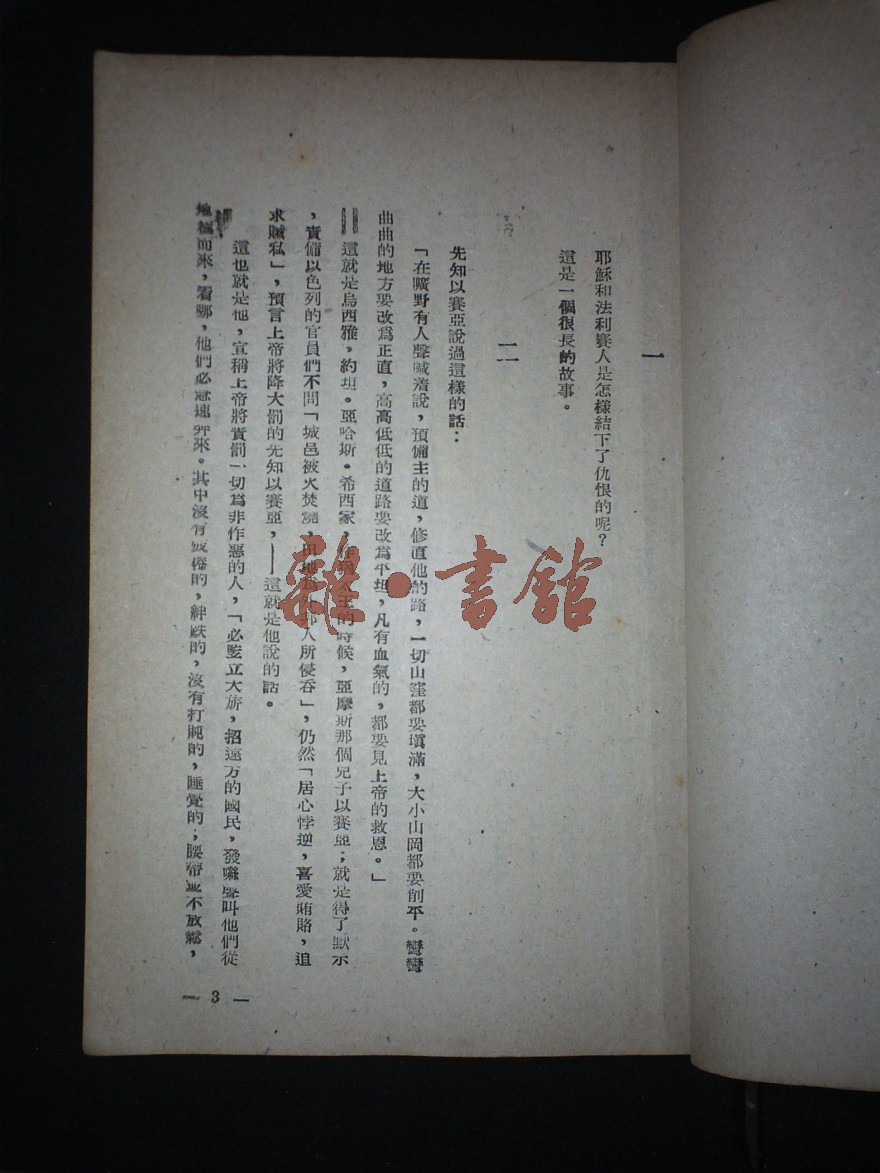 一
耶穌和法利賽人是怎樣結下了仇恨的呢？
這是一個很長的故事。
二
先知以賽亞說過這樣的話：
「在曠野有人聲喊着說，預備主的道，修直他的路，一切山窪都要填滿，大小山岡都要削平。彎彎
曲曲的地方要改爲正直，高高低低的道路要改爲平坦，凡有血氣的，都要見上帝的救恩。」
這就是烏西雅，約坦。亞哈斯。希西家，的時候，亞摩斯那個兒子以賽亞；就是得了默示
，責備以色列的官員們不問「城邑被火焚燒，田地爲外邦人所侵吞」，仍然「居心悖逆，喜愛賄賂，追
求贓私」，預言上帝將降大罰的先知以賽亞，——這就是他說的話。
這也就是他，宣稱上帝將責罰一切爲非作惡的人，「必豎立大旂，招遠方的國民，發嘶聲叫他們從
地極而來，看哪，他們必急速奔來。其中沒有疲倦的，絆跌的，沒有打盹的，睡覺的；腰帶並不放鬆，
— 3 —
雜·書館